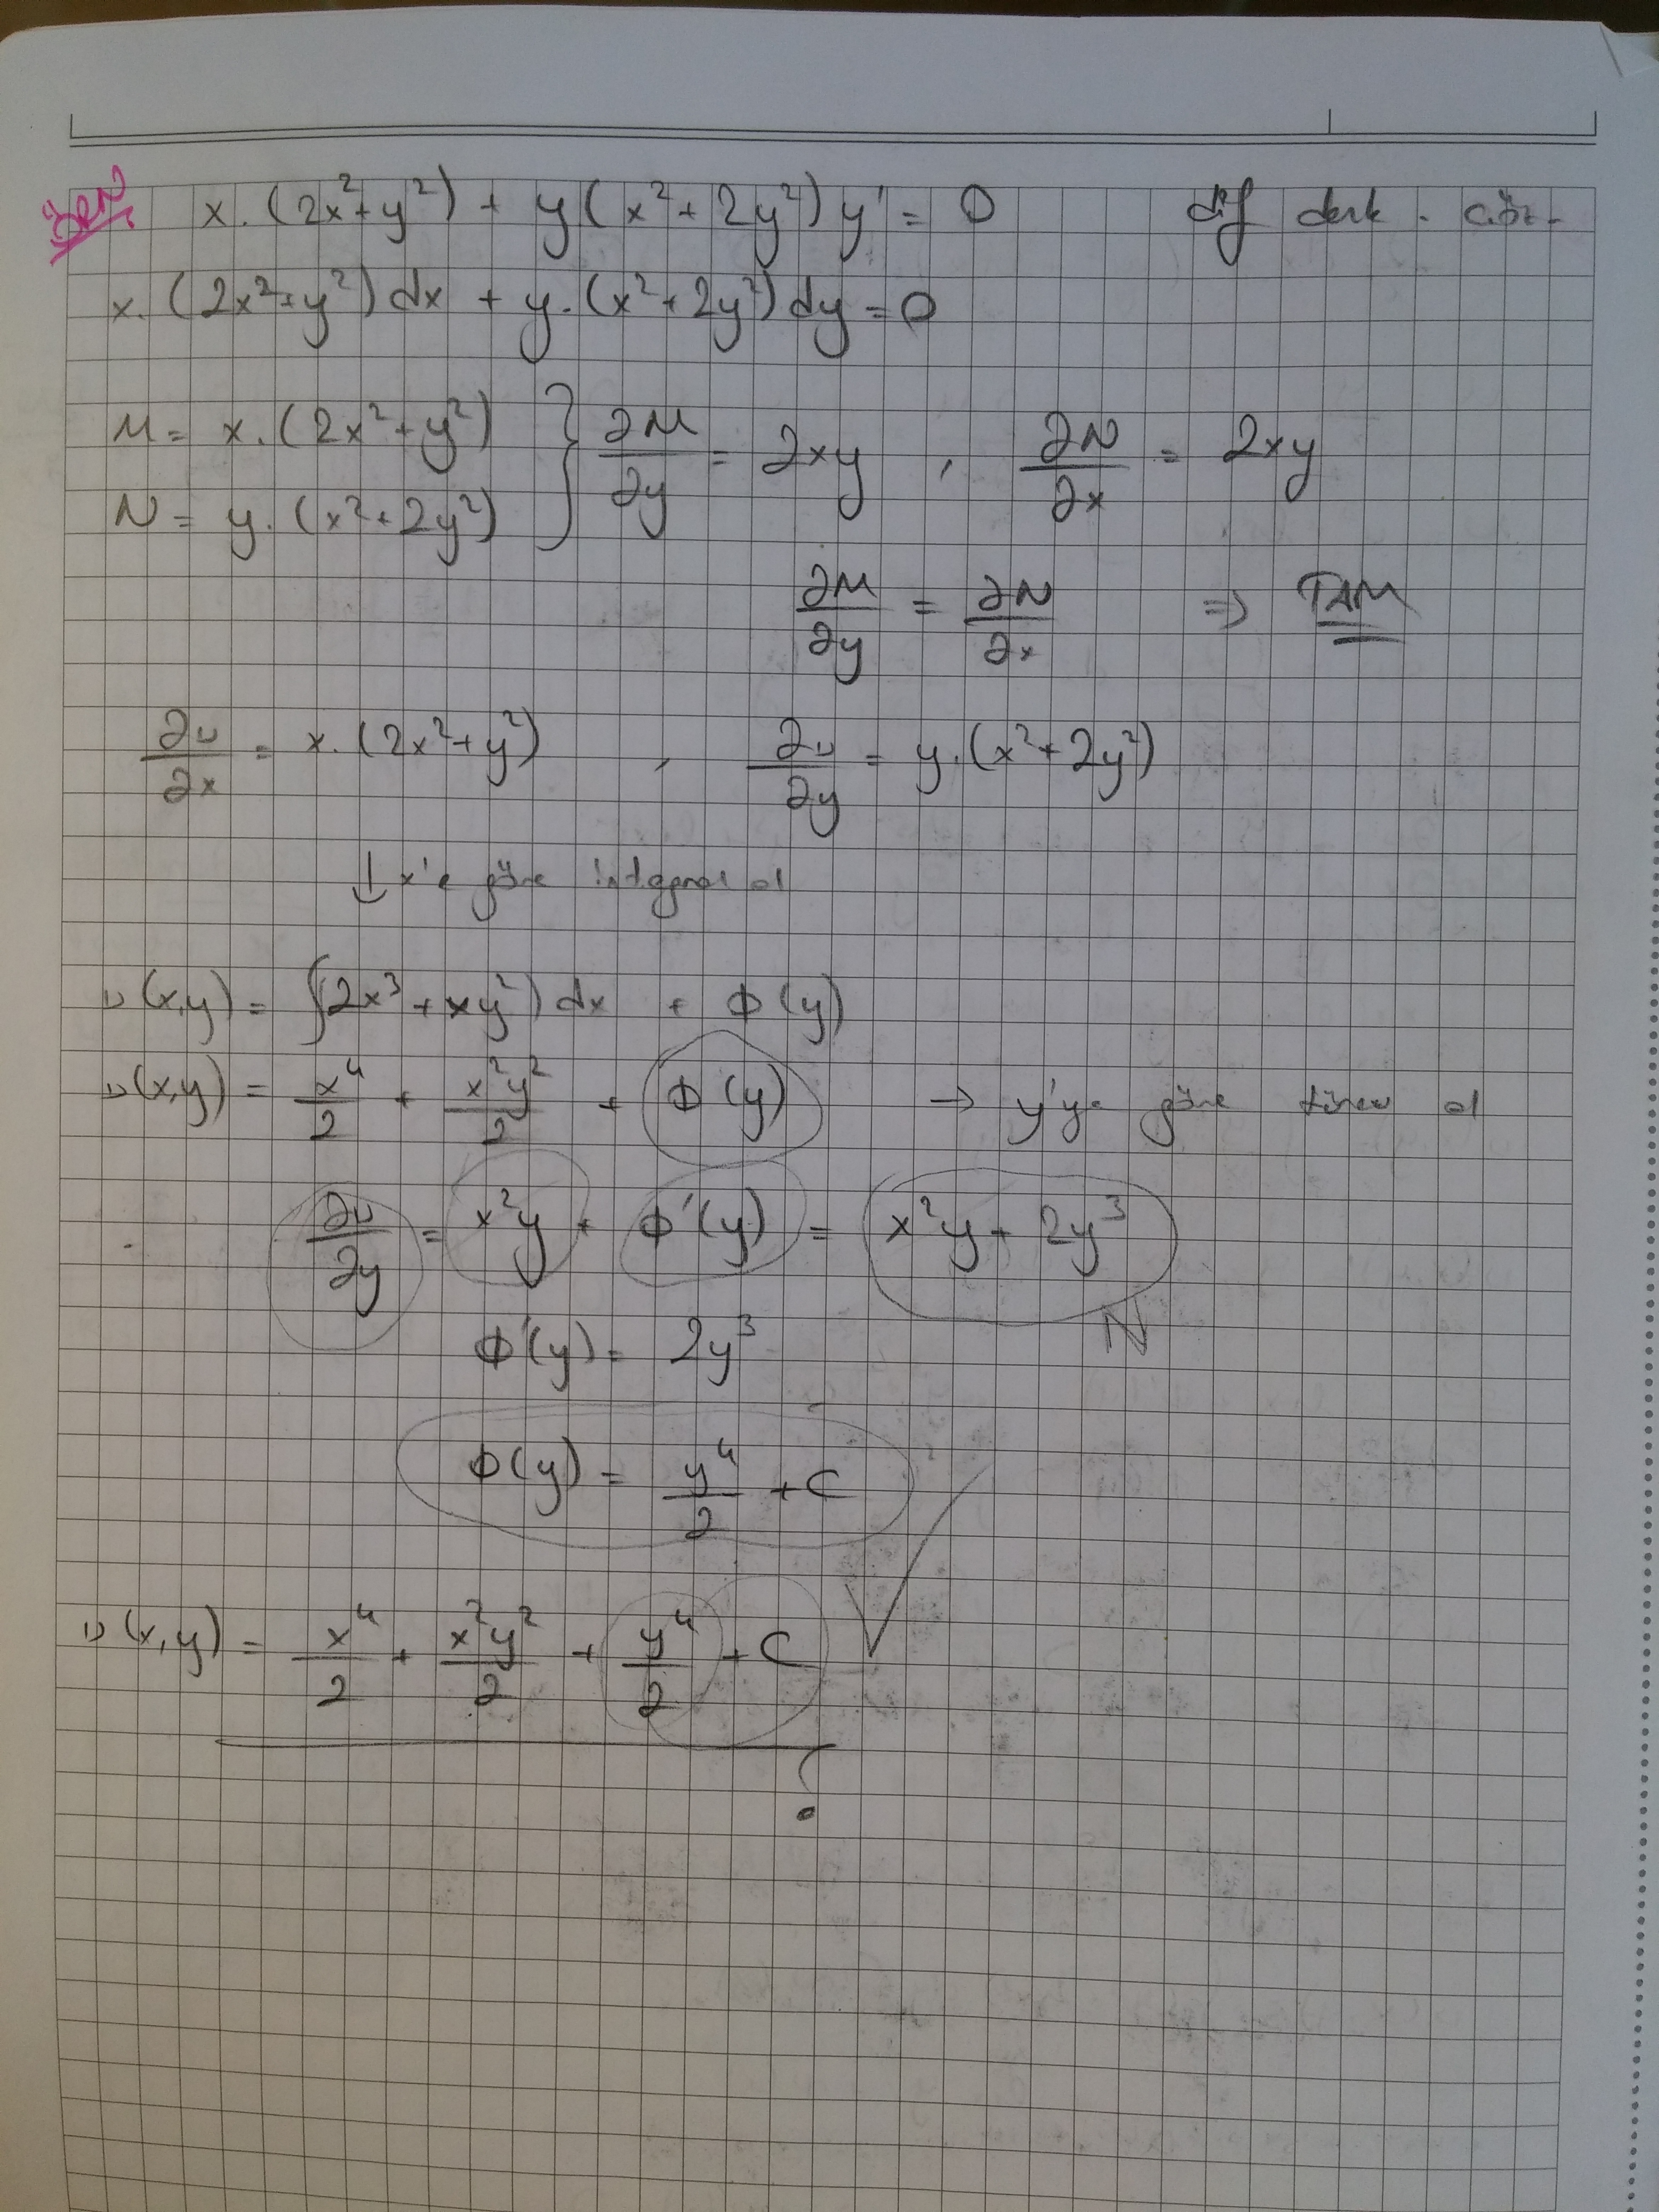 ÖRN x.(2x²+y²) + y(x²+2y²)y' = 0 dif denk. çöz.
x.(2x²+y²)dx + y.(x²+2y²)dy = 0
M = x.(2x²+y²) } ∂M/∂y = 2xy , ∂N/∂x = 2xy
N = y.(x²+2y²)
∂M/∂y = ∂N/∂x ⇒ TAM
∂u/∂x = x.(2x²+y²) , ∂u/∂y = y.(x²+2y²)
↓ x'e göre integral al
u(x,y) = ∫(2x³+xy²)dx + Φ(y)
u(x,y) = x⁴/2 + x²y²/2 + Φ(y) → y'ye göre türev al
∂u/∂y = x²y + Φ'(y) = x²y + 2y³
N
Φ'(y) = 2y³
Φ(y) = y⁴/2 + C
u(x,y) = x⁴/2 + x²y²/2 + y⁴/2 + C